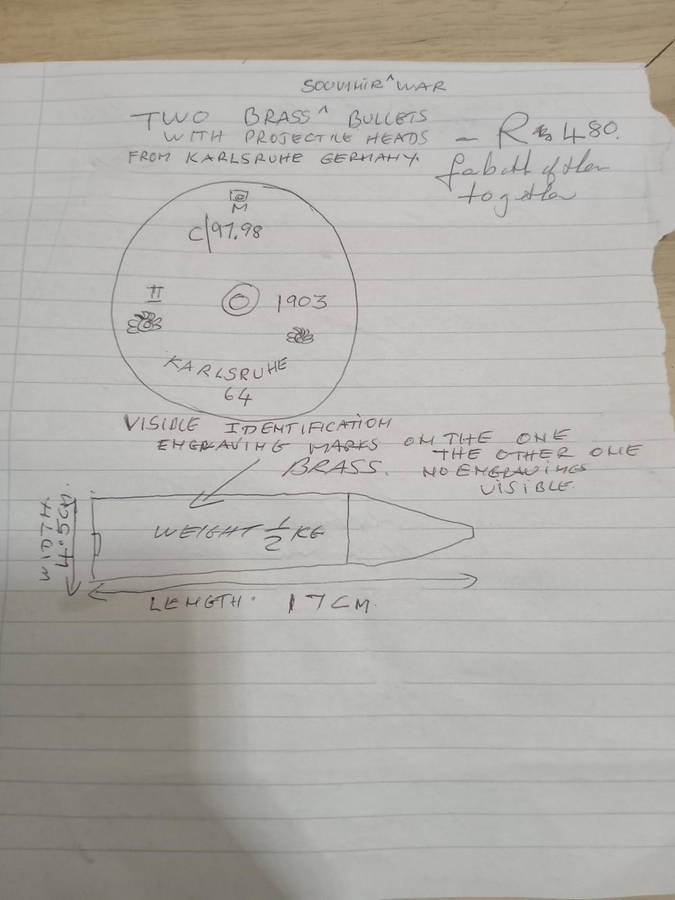 SOUVINIR ^ WAR
TWO BRASS ^ BULLETS
WITH PROJECTILE HEADS – R 480.
FROM KARLSRUHE GERMANY.
together
M
C/97.98
II 1903
KARLSRUHE
64
VISIBLE IDENTIFICATION
ENGRAVING MARKS ON THE ONE
THE OTHER ONE
BRASS. NO ENGRAVINGS
VISIBLE.
WEIGHT 1/2 KG
WIDTH.
4.5CM.
LENGTH. 17CM.